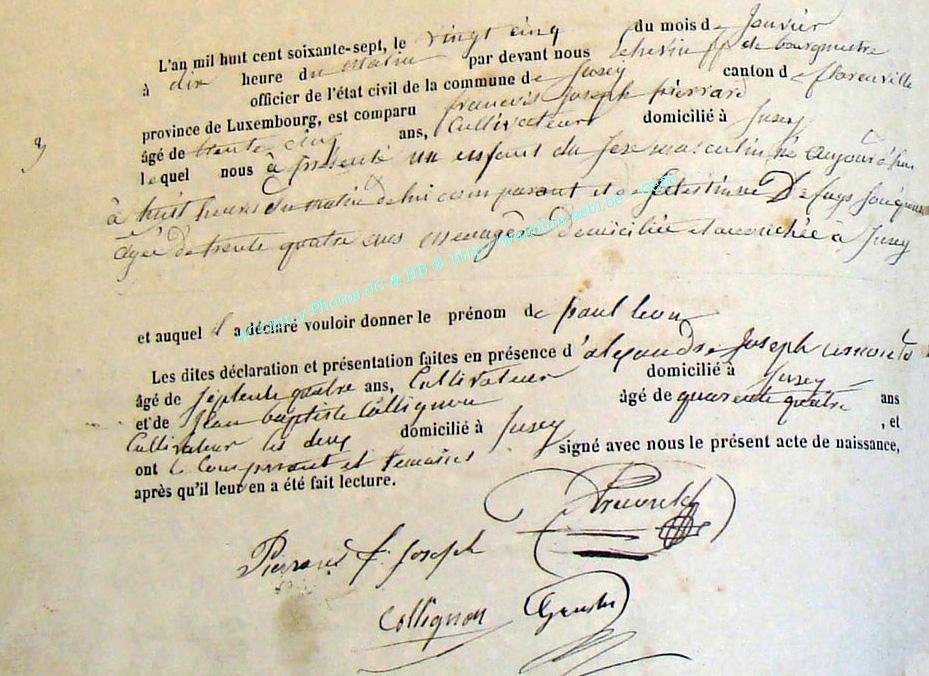 L'an mil huit cent soixante-sept, le vingt cinq du mois de Janvier
à dix heure du matin par devant nous Echevin ff de bourgmestre
officier de l'état civil de la commune de Jusey canton de florenville
province de Luxembourg, est comparu francois Joseph pierrard
âgé de trente cinq ans, Cultivateur domicilié à Jusey
lequel nous à présenté un enfant du sexe masculin né aujourd'hui
à huit heures du matin de lui comparant et de Celestinne
agée de trente quatre ans menagère domiciliée et a Jusey
et auquel il a déclaré vouloir donner le prénom de paul leon
Les dites déclaration et présentation faites en présence d'alexandre Joseph
âgé de septente quatre ans, Cultivateur domicilié à Jusey
et de Jean baptiste Collignon âgé de quarente quatre ans
Cultivateur les deux domicilié à Jusey , et
ont le Comparant et temoins signé avec nous le présent acte de naissance,
après qu'il leur en a été fait lecture.
Pierrard f. Joseph
Collignon